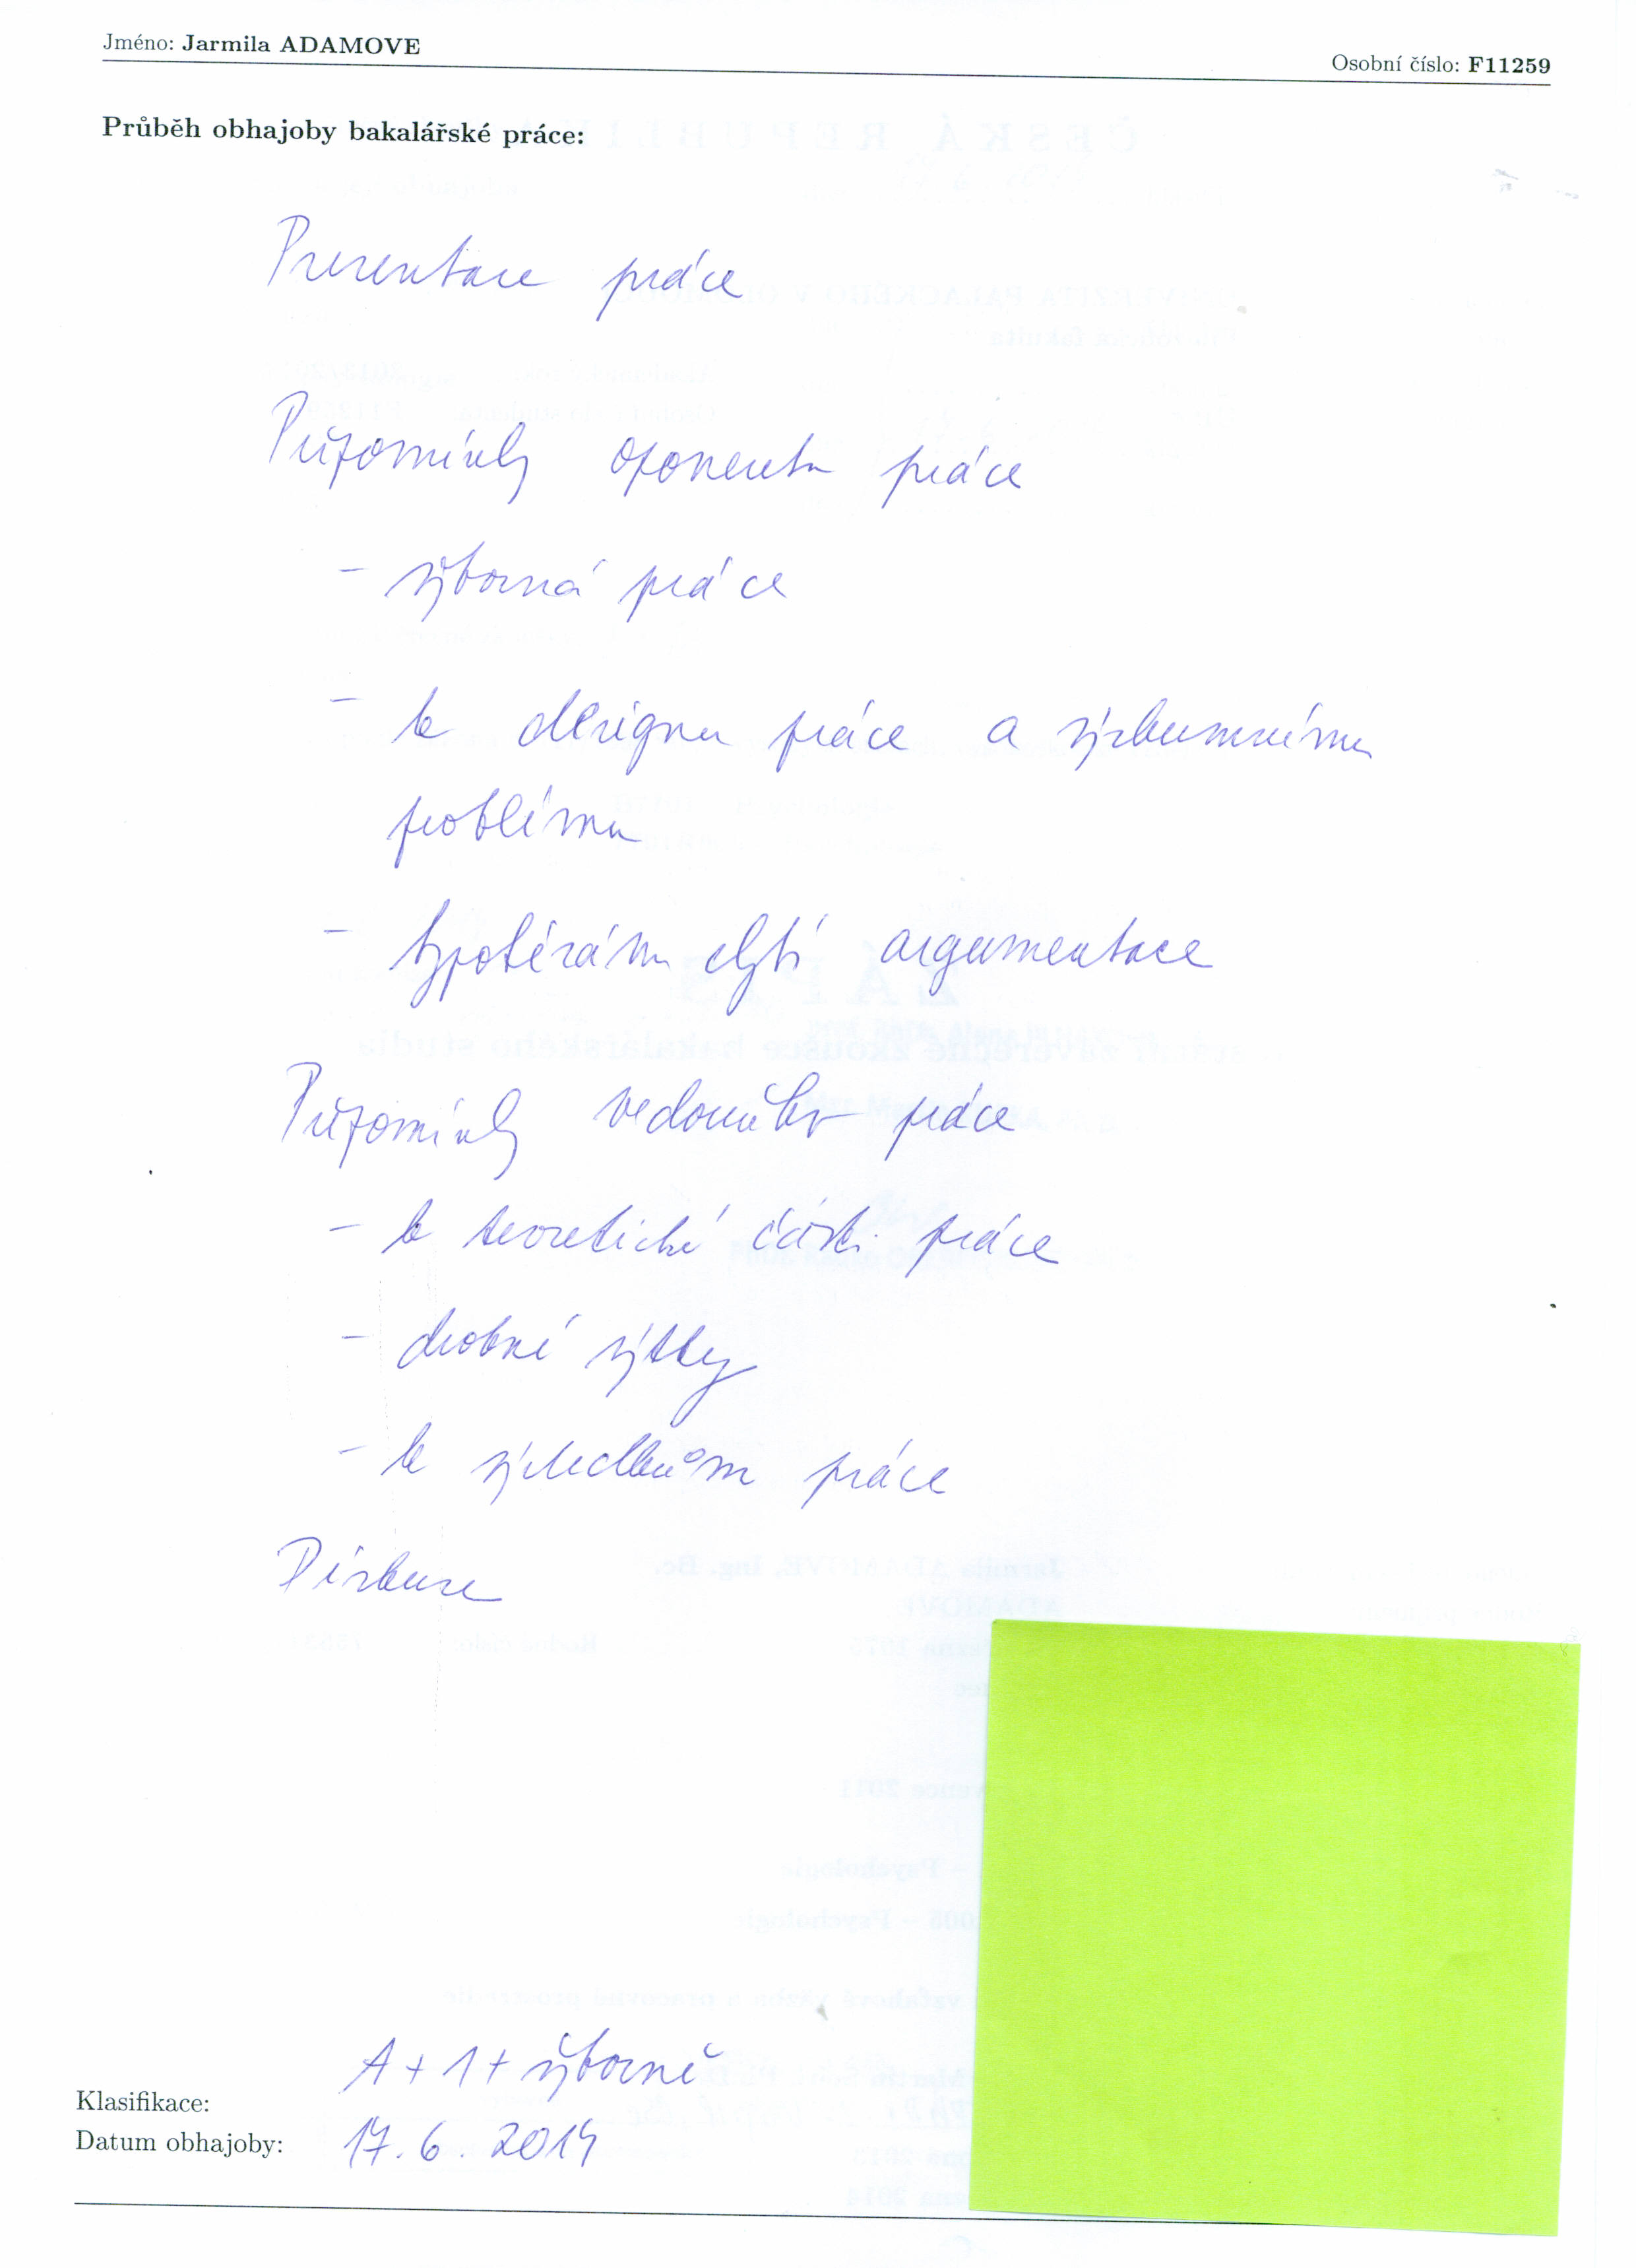 Jméno: Jarmila ADAMOVE
Osobní číslo: F11259
Průběh obhajoby bakalářské práce:
Prezentace práce
Připomínky oponenta práce
- výborná práce
- k designu práce a výzkumnému
problému
- hypotézám chybí argumentace
Připomínky vedoucího práce
- k teoretické části práce
- drobné výtky
- k výsledkům práce
Diskuse
Klasifikace: A + 1 + výborně
Datum obhajoby: 17. 6. 2014